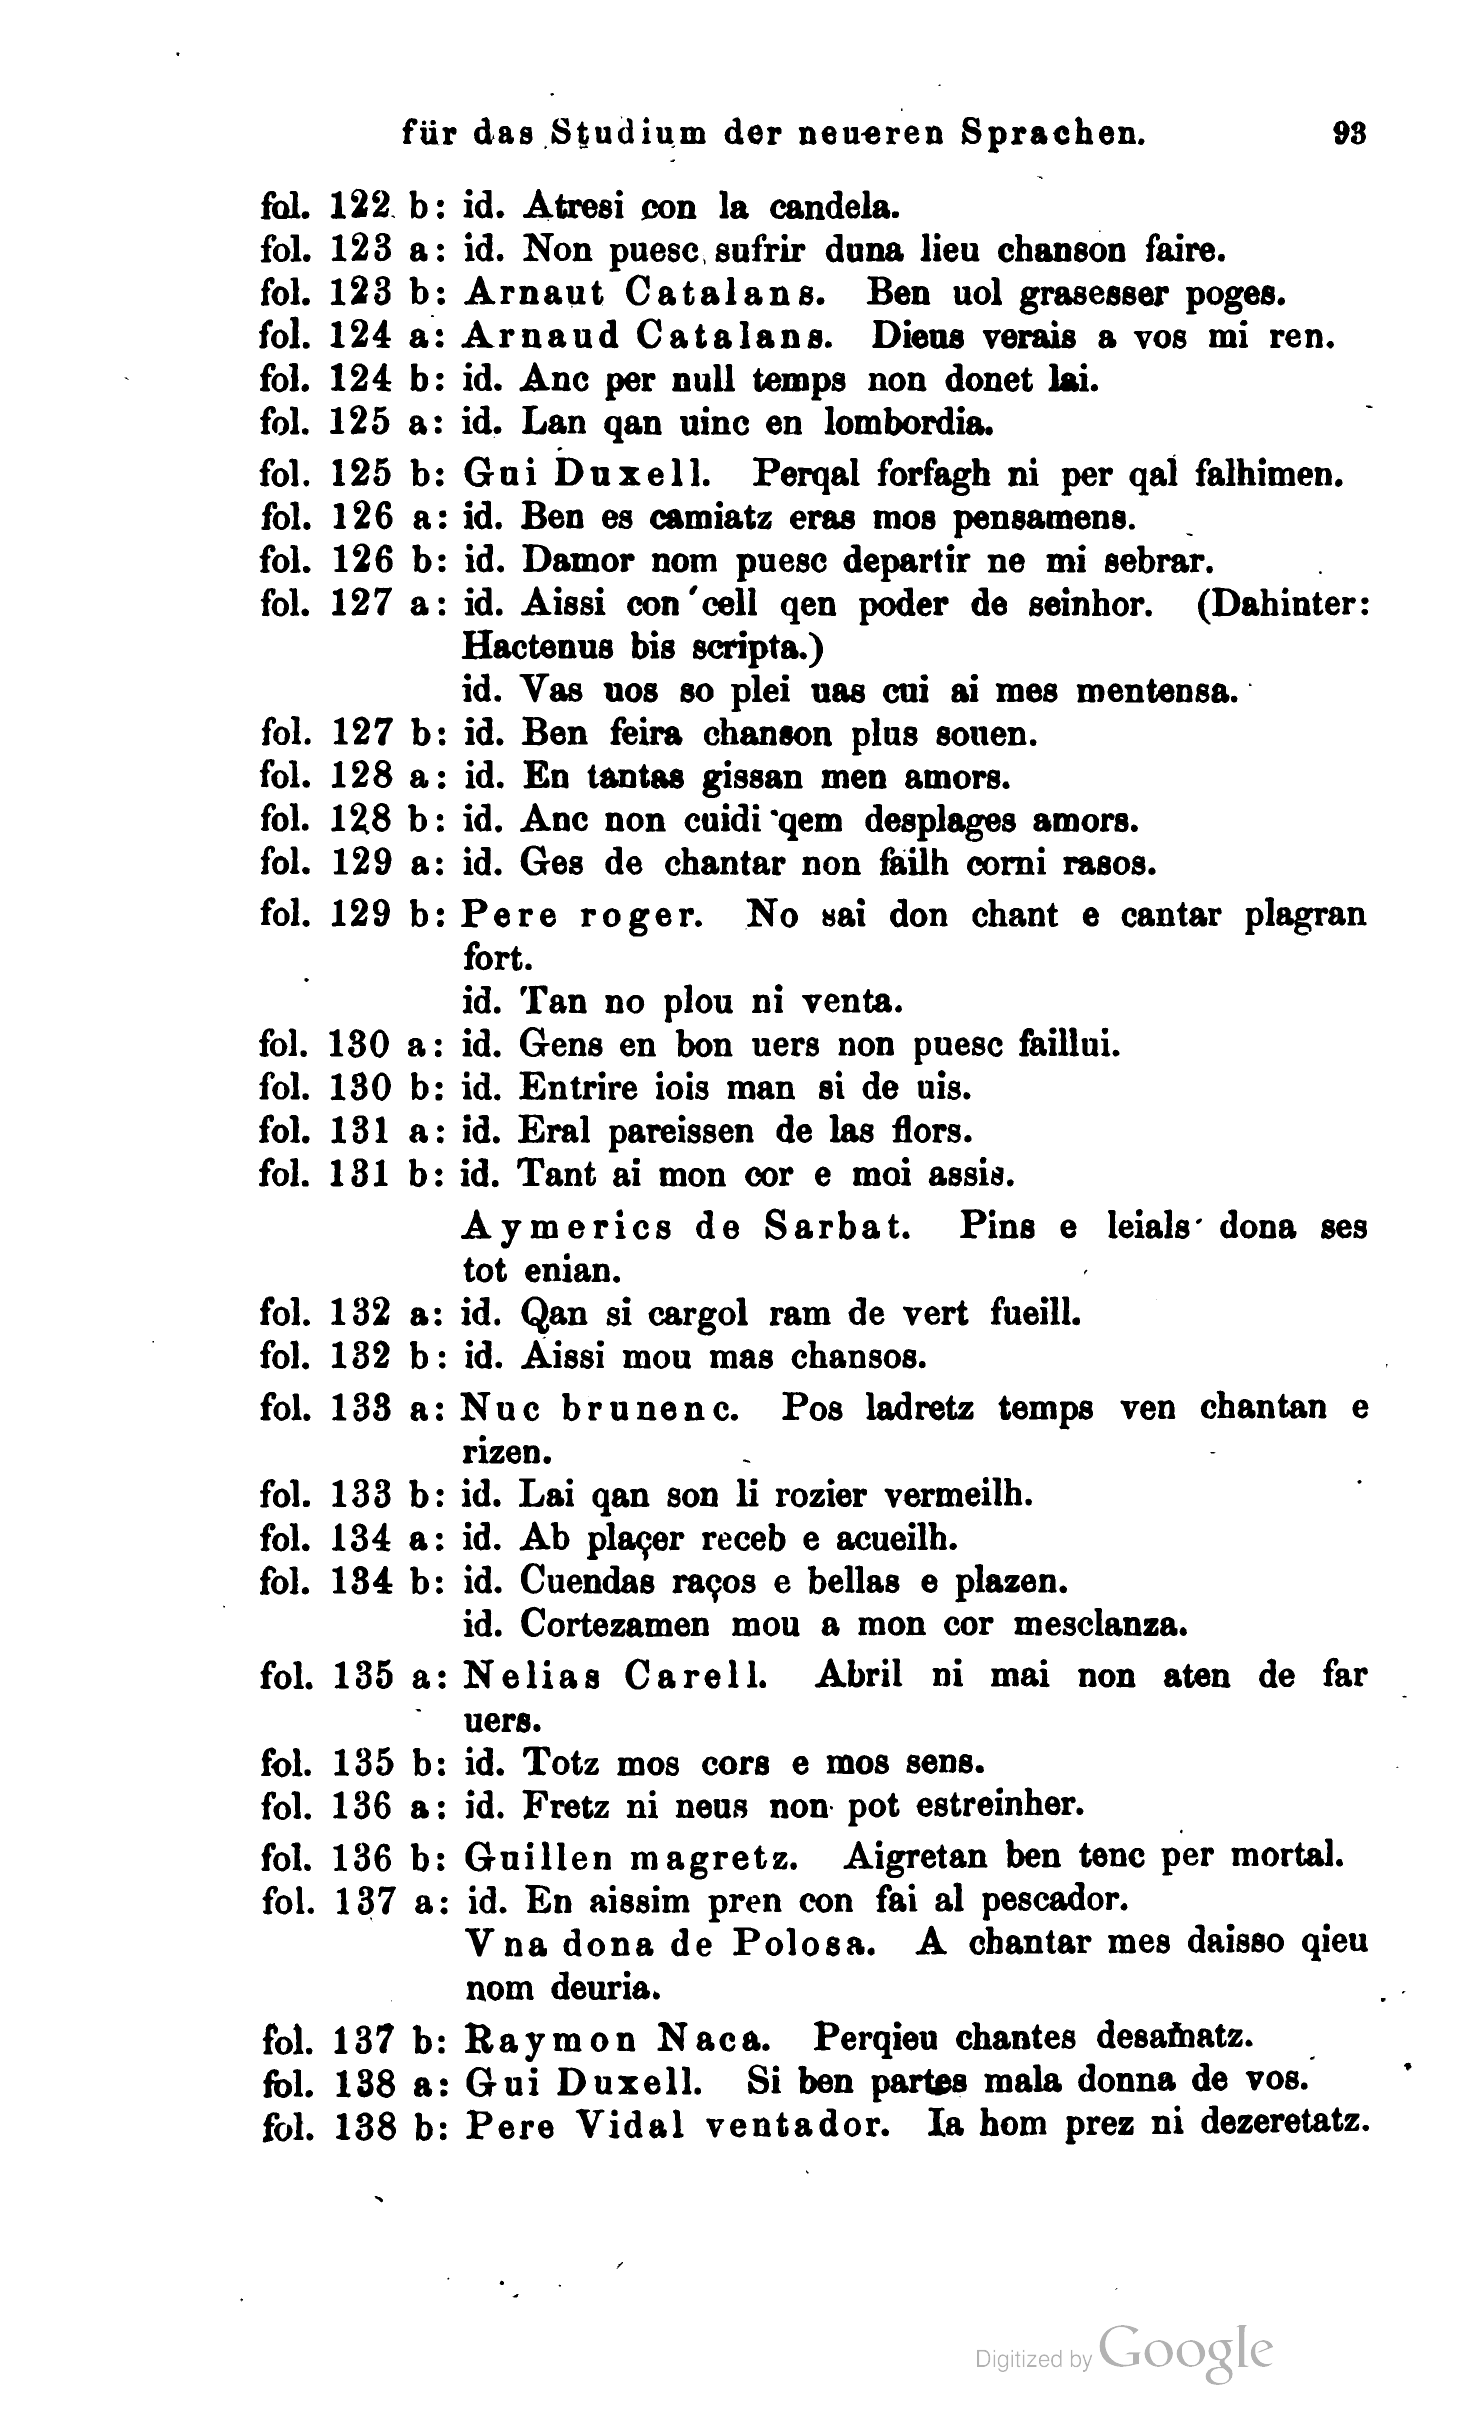 für das Studium der neueren Sprachen. 93
fol. 122 b: id. Atresi con la candela.
fol. 123 a: id. Non puesc sufrir duna lieu chanson faire.
fol. 123 b: Arnaut Catalans. Ben uol grasesser poges.
fol. 124 a: Arnaud Catalans. Dieus verais a vos mi ren.
fol. 124 b: id. Anc per null temps non donet lai.
fol. 125 a: id. Lan qan uinc en lombordia.
fol. 125 b: Gui Duxell. Perqal forfagh ni per qal falhimen.
fol. 126 a: id. Ben es camiatz eras mos pensamens.
fol. 126 b: id. Damor nom puesc departir ne mi sebrar.
fol. 127 a: id. Aissi con cell qen poder de seinhor. (Dahinter:
Hactenus bis scripta.)
id. Vas uos so plei uas cui ai mes mentensa.
fol. 127 b: id. Ben feira chanson plus souen.
fol. 128 a: id. En tantas gissan men amors.
fol. 128 b: id. Anc non cuidi qem desplages amors.
fol. 129 a: id. Ges de chantar non failh corni rasos.
fol. 129 b: Pere roger. No sai don chant e cantar plagran
fort.
id. Tan no plou ni venta.
fol. 130 a: id. Gens en bon uers non puesc faillui.
fol. 130 b: id. Entrire iois man si de uis.
fol. 131 a: id. Eral pareissen de las flors.
fol. 131 b: id. Tant ai mon cor e moi assis.
Aymerics de Sarbat. Pins e leials dona ses
tot enian.
fol. 132 a: id. Qan si cargol ram de vert fueill.
fol. 132 b: id. Aissi mou mas chansos.
fol. 133 a: Nuc brunenc. Pos ladretz temps ven chantan e
rizen.
fol. 133 b: id. Lai qan son li rozier vermeilh.
fol. 134 a: id. Ab plaçer receb e acueilh.
fol. 134 b: id. Cuendas raços e bellas e plazen.
id. Cortezamen mou a mon cor mesclanza.
fol. 135 a: Nelias Carell. Abril ni mai non aten de far
uers.
fol. 135 b: id. Totz mos cors e mos sens.
fol. 136 a: id. Fretz ni neus non pot estreinher.
fol. 136 b: Guillen magretz. Aigretan ben tenc per mortal.
fol. 137 a: id. En aissim pren con fai al pescador.
Vna dona de Polosa. A chantar mes daisso qieu
nom deuria.
fol. 137 b: Raymon Naca. Perqieu chantes desamatz.
fol. 138 a: Gui Duxell. Si ben partes mala donna de vos.
fol. 138 b: Pere Vidal ventador. Ia hom prez ni dezeretatz.
Digitized by Google